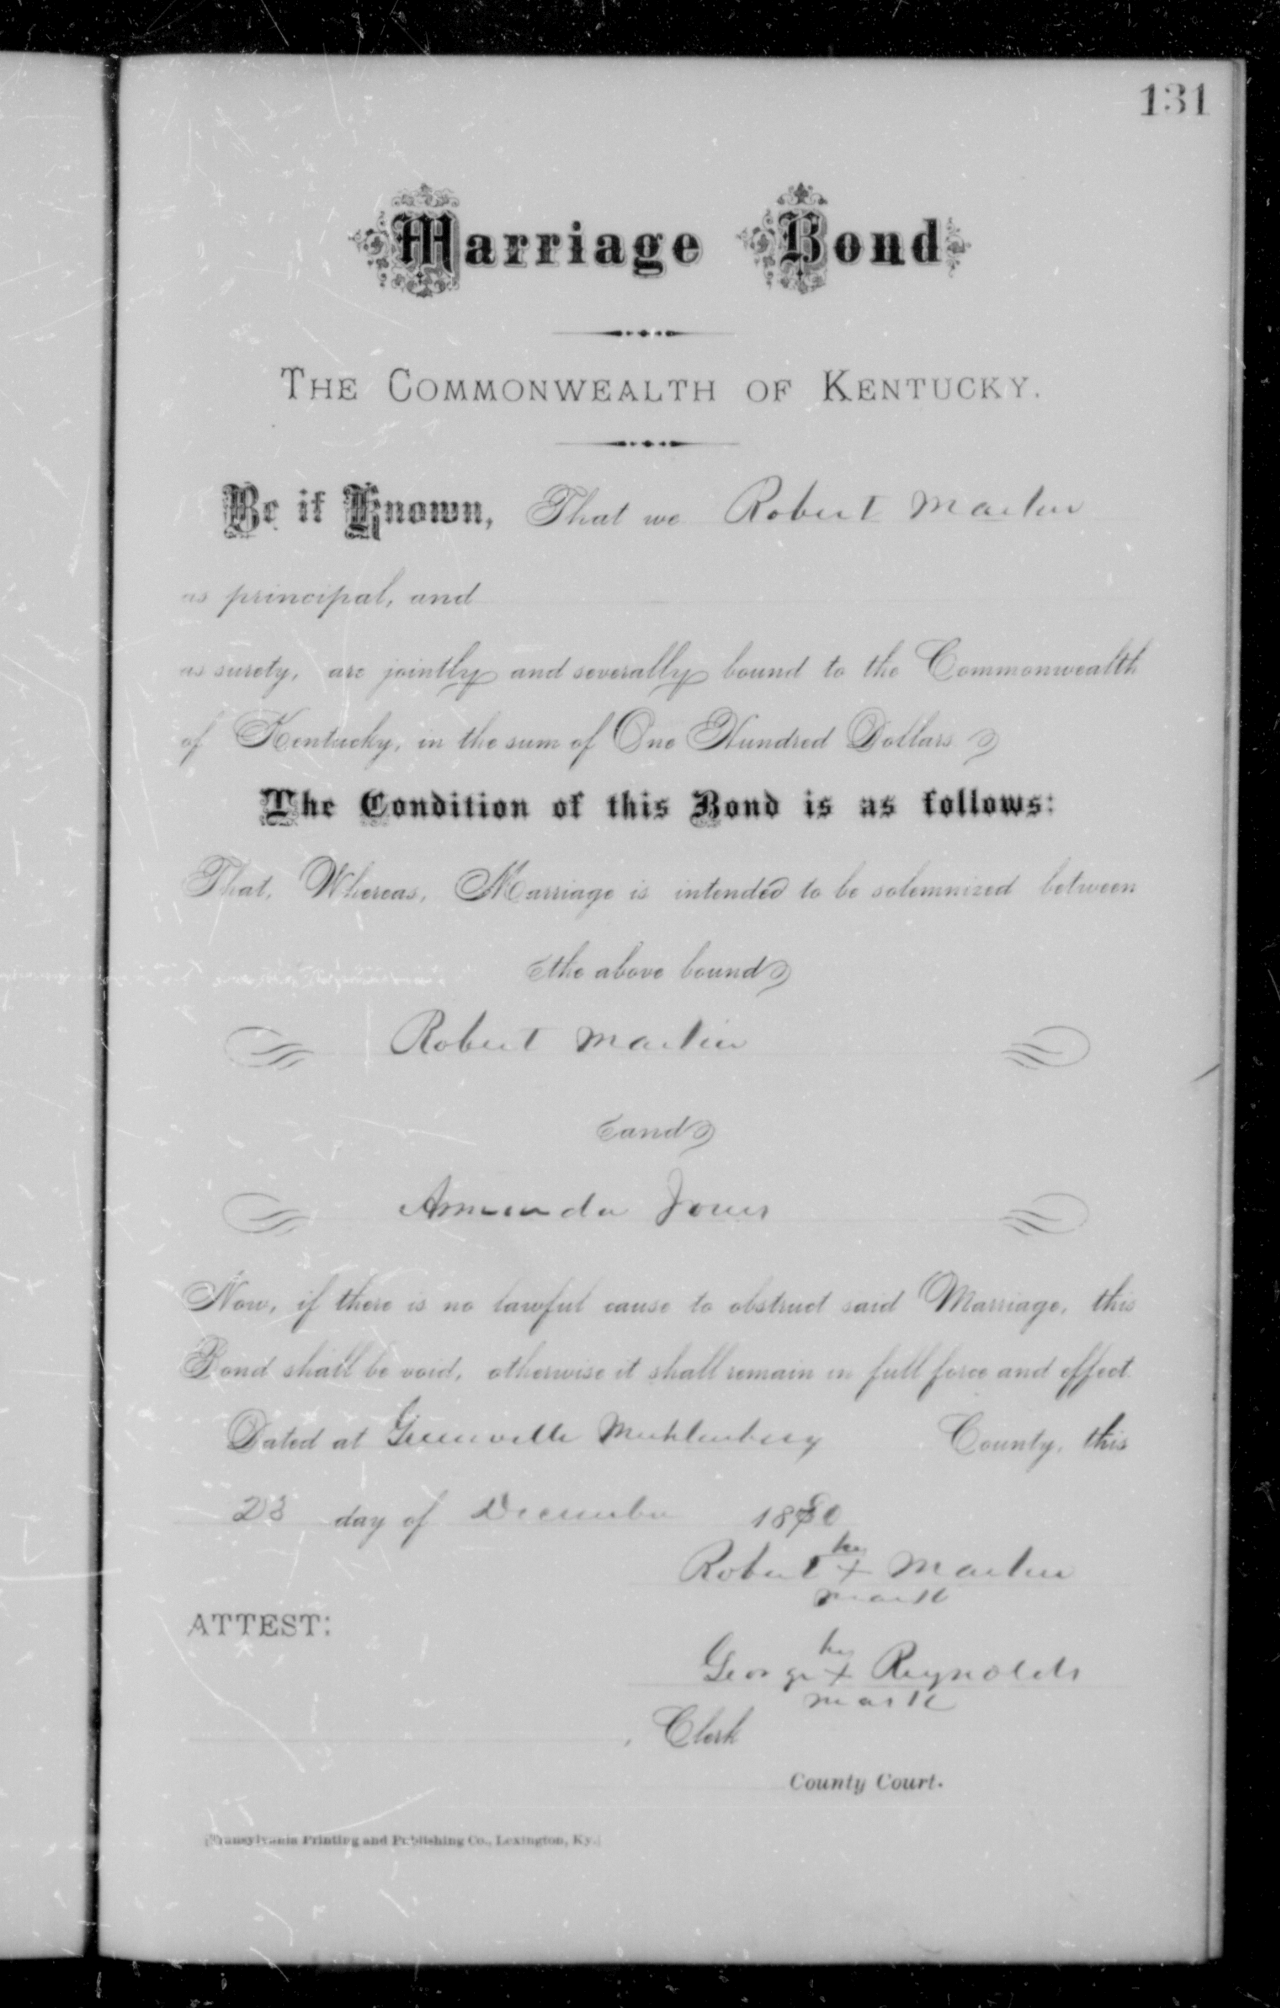 131
Marriage Bond
THE COMMONWEALTH OF KENTUCKY.
Be it Known, That we Robert Martin
as principal, and
as surety, are jointly and severally bound to the Commonwealth
of Kentucky, in the sum of One Hundred Dollars
The Condition of this Bond is as follows:
That, Whereas, Marriage is intended to be solemnized between
the above bound
Robert Martin
and
Amanda Jones
Now, if there is no lawful cause to obstruct said Marriage, this
Bond shall be void, otherwise it shall remain in full force and effect.
Dated at Greenville Muhlenberg County, this
23 day of December 1880
his
Robert X Martin
mark
ATTEST:
his
George X Reynolds
mark
, Clerk
County Court.
(Transylvania Printing and Publishing Co., Lexington, Ky.)